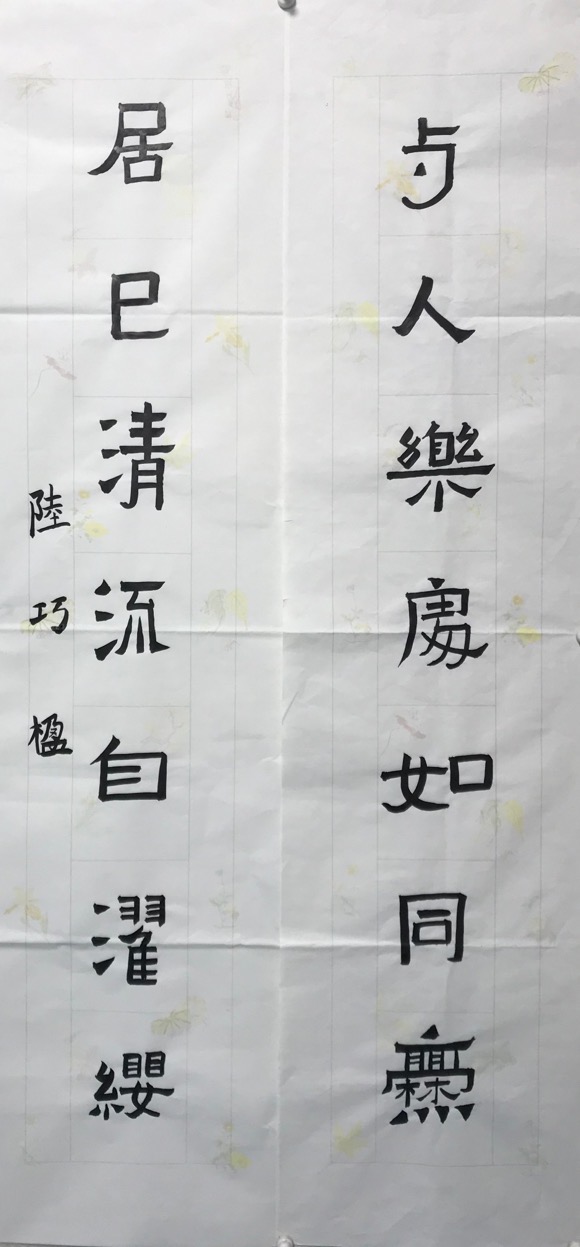 与人樂處如同爨
居巳清流自濯纓
陸巧楹